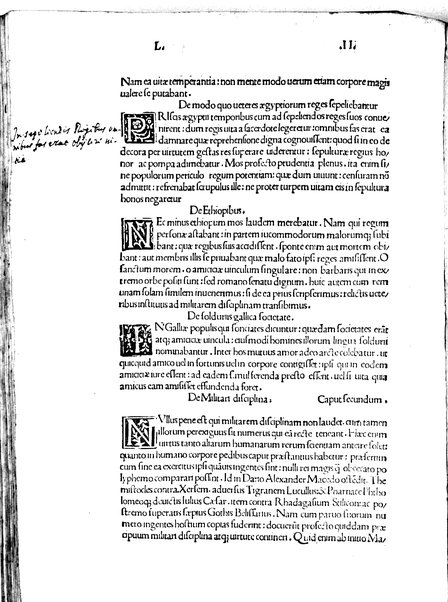 L. .II.
Nam ea uitæ temperantia: non mente modo uerum etiam corpore magis
ualere se putabant.
De modo quo ueteres ægyptiorum reges sepeliebantur
PRIscas ægypti temporibus cum ad sepeliendos reges suos conue
nirent: dum regis uita a sacerdote legeretur: omnibus fas erat ea
damnare quæ reprehensione digna cognouissent: quod si in eo de
decora per uirtutem gestas res superare uiderentur: sepulturæ regius ho
nor ac pompa adhibebatur. Mos profecto prudentia plenus. ita enim si
ne populorum periculo regum potentiam: quæ dum uiuunt: censuram nō
admittit: refrenabat scrupulus ille: ne propter turpem uitam eis in sepultura
honos negaretur
De Ethiopibus.
NEc minus ethiopum mos laudem merebatur. Nam qui regum
personæ astabant: in partem incommodorum malorumq; subi
bant: quæ regibus suis accidissent. sponte enim aut mortem obi
bant: aut membris illis se priuabant quæ malo fato ipsi reges amisissent. O
sanctum morem. o amicitiæ uinculum singulare: non barbaris qui in ex
tremo orbe positi sunt: sed romano senatu dignum. huic autem rem
unam solam similem inuenimus: si de ea prius scripserimus: relictis uete
ribus institutis ad militarem disciplinam transibimus.
De solduriis gallica societate.
IN Galliæ populis qui sontiates dicuntur: quædam societates erāt
atq; amicitiæ uincula: eiusmodi homines illorum lingua soldurii
nominabantur. Inter hos mutuus amor adeo arcte colebatur. ut
quicquid amico uel in fortunis uel in corpore contigisset: ipsi qui in eodem
amicitiæ iure essent: ad eadem sufferenda presto essent. uel si uita quā
amicus eam amisisset effundenda foret.
De Militari disciplina. Caput secundum.
NUllus pene est qui militarem disciplinam non laudet. cum tamen
illorum perexiguus sit numerus qui eā recte teneant. Hæc enim
uirtus tanto aliarum humanarum rerum scientiam anteire solet:
quanto in humano corpore pedibus caput præstantius habetur: præsertim
cum sine ea exercitus ipsi quāuis ingentes sint: nulli rei magis q̄ obcecato po
lyphemo comparari possint. Id in Dario Alexander Macedo ostēdit. The
mistocles contra Xersem. aduersus Tigranem Lucullus: & Pharnace Ptho
lomeoq; deuictis Iulius Cæsar. item contra Rhadagasum Stilicon: ac po
stremo superatis sæpius Gothis Belisarius. Nam cum paruo suorum nu
mero ingentes hostium copias fuderint: docuerūt profecto quiddam præ
cipuum militari disciplina atq; uirtute contineri. Quid enim ab initio Ma-